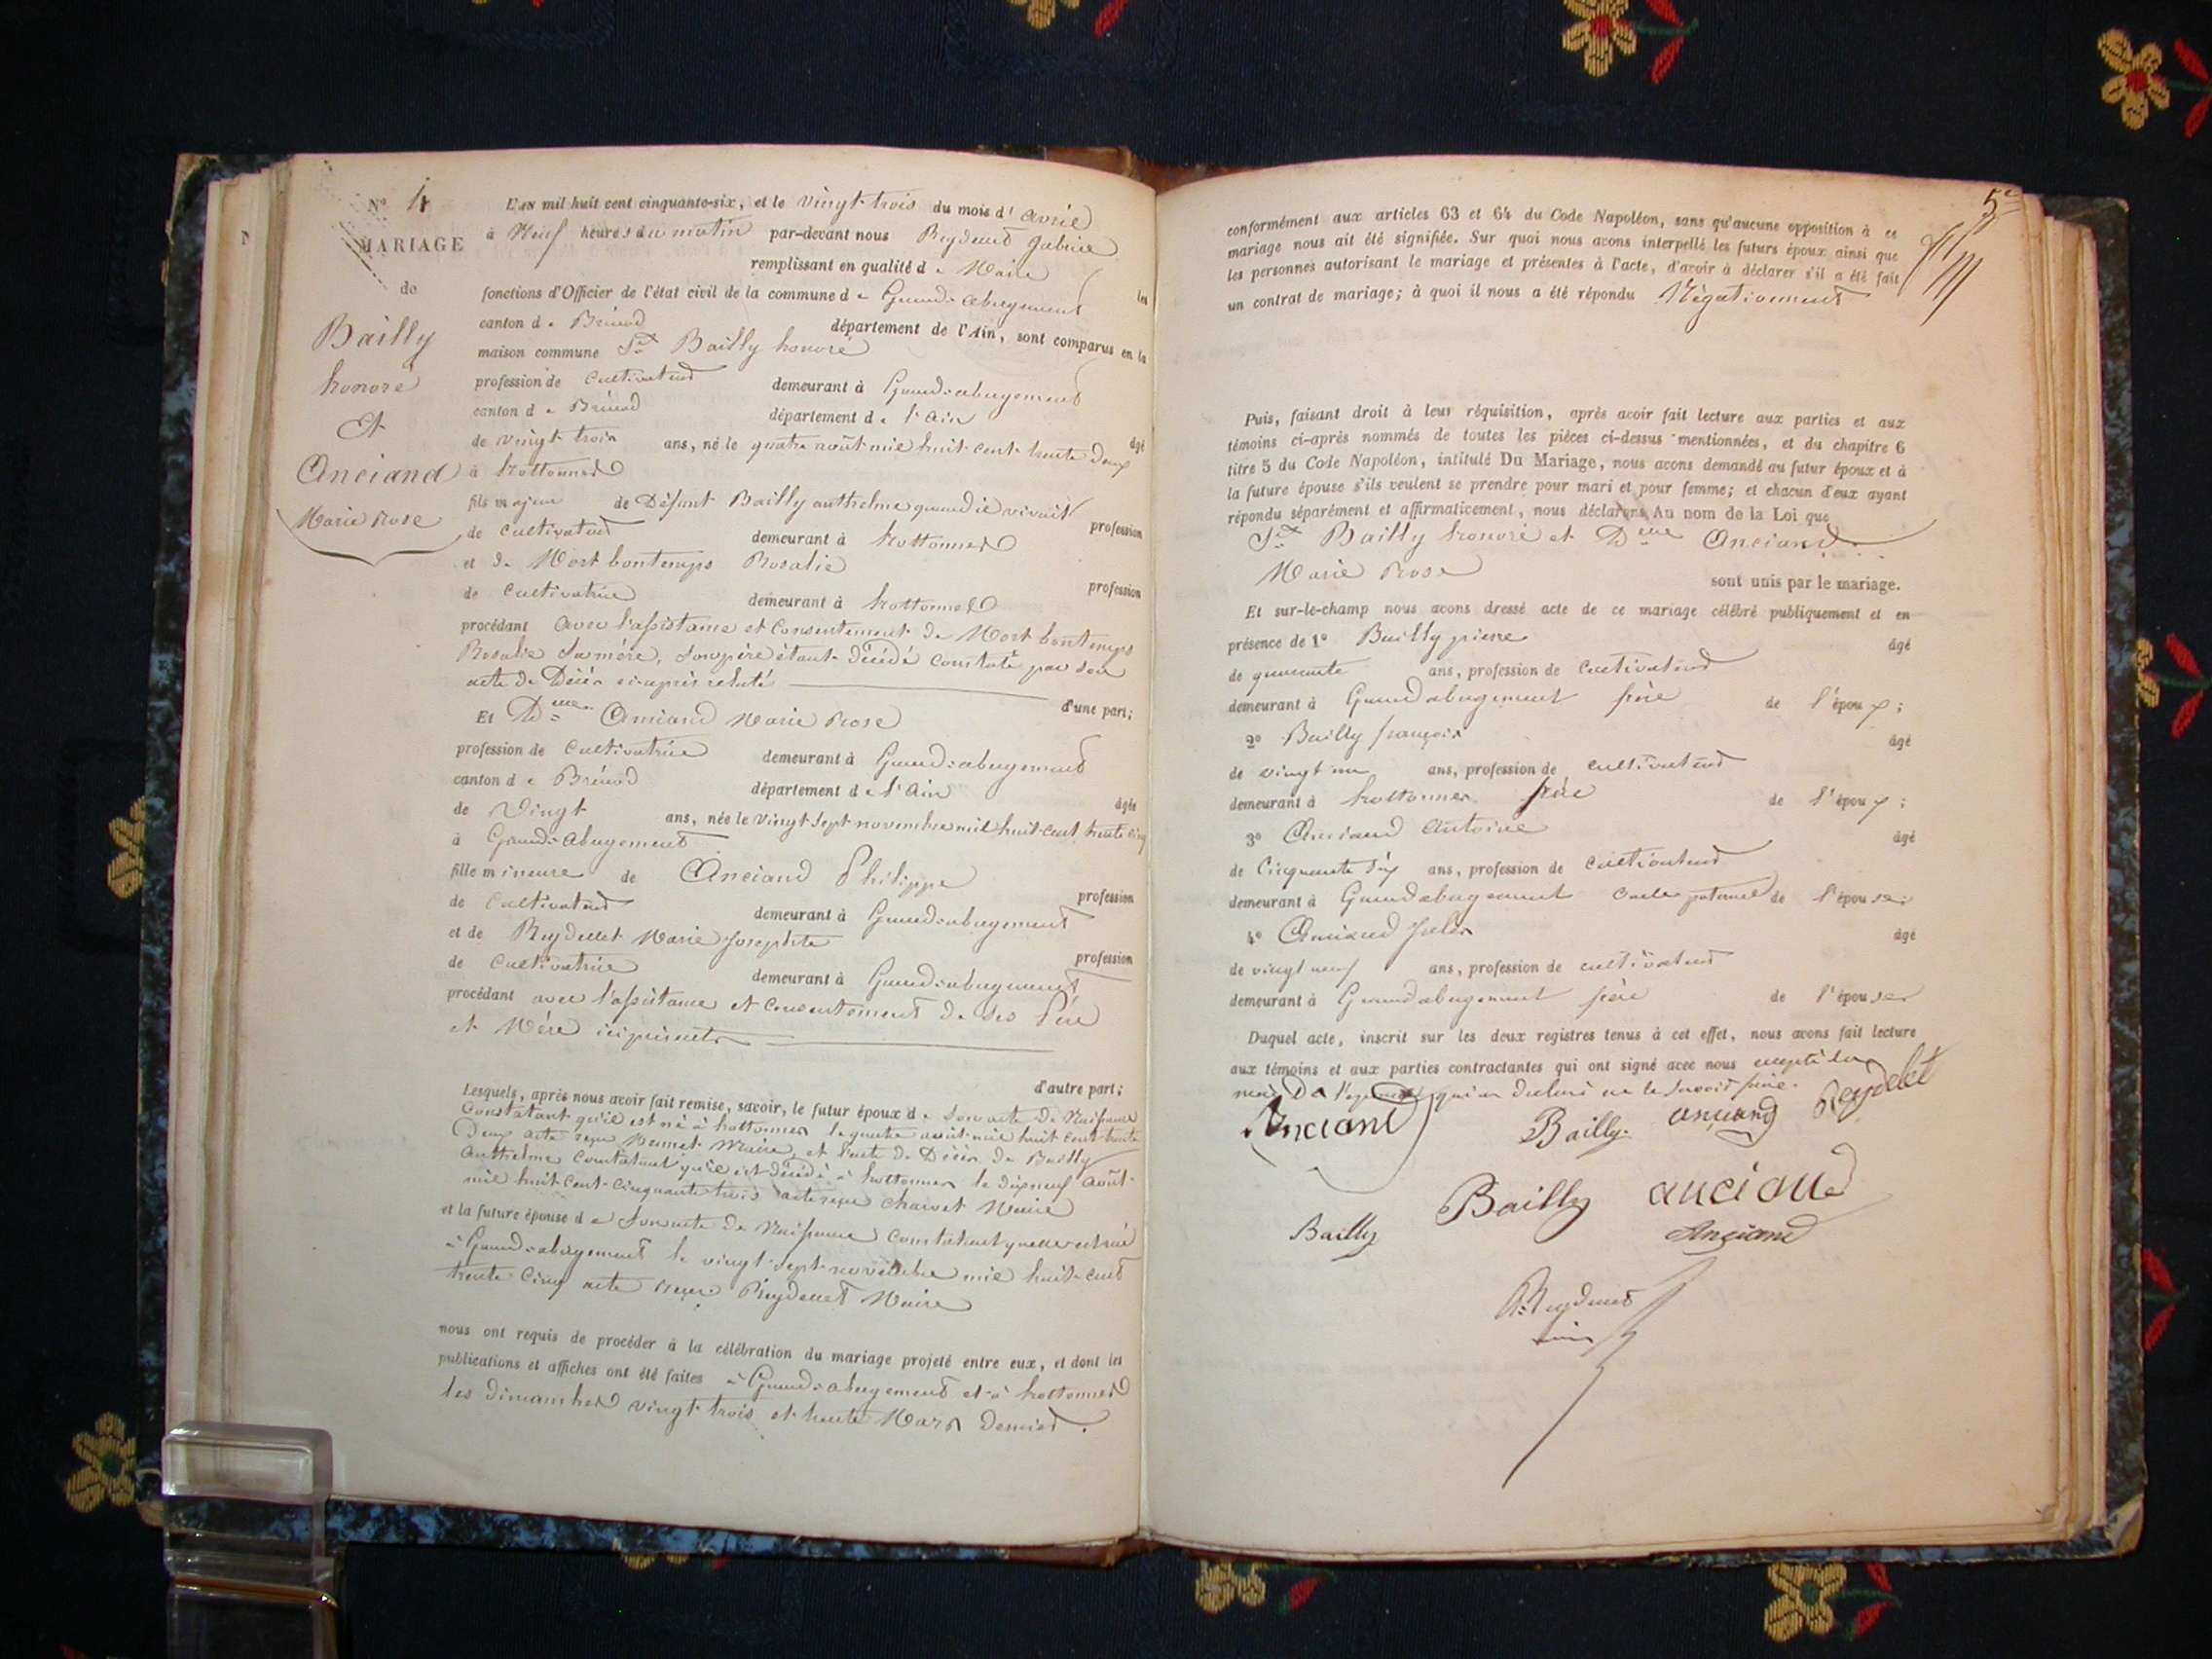 N° 4
MARIAGE
de
Bailly
honoré
Et
Anciand
Marie Rose
L'an mil huit cent cinquante-six, et le vingt trois du mois d'avril
à Neuf heures du matin par-devant nous Reydellet
remplissant en qualité de Maire les
fonctions d'Officier de l'état civil de la commune de Grand-abergement
canton de Brénod département de l'Ain, sont comparus en la
maison commune Sr Bailly honoré
profession de Cultivateur demeurant à Grand-abergement
canton de Brénod département de l'Ain âgé
de vingt trois ans, né le quatre août mil huit cent trente deux
à hottonnes
fils majeur de Défunt Bailly anthelme quand il vivait profession
de Cultivateur demeurant à hottonnes
et de Mort bontemps Rosalie profession
de Cultivatrice demeurant à hottonnes
procédant avec l'assistance et Consentement de Mort bontemps
Rosalie Sa mère, Son père étant décédé Constaté par son
acte de Décès ci après relaté d'une part;
Et Dlle Anciand Marie Rose
profession de Cultivatrice demeurant à Grand-abergement
canton de Brénod département de l'Ain âgée
de Vingt ans, née le vingt sept novembre mil huit cent trente cinq
à Grand-abergement
fille mineure de Anciand Philippe profession
de Cultivateur demeurant à Grand-abergement
et de Reydellet Marie Josephte profession
de Cultivatrice demeurant à Grand-abergement
procédant avec l'assistance et Consentement de Ses Père
et Mère ici présents
d'autre part;
Lesquels, après nous avoir fait remise, savoir, le futur époux de Son acte de Naissance
Constatant qu'il est né à hottonnes le quatre août mil huit cent trente
Deux acte reçu Maire, et l'acte de Décès de Bailly
Anthelme Constatant qu'il est décédé à hottonnes le dix neuf août
mil huit Cent Cinquante trois acte reçu Charvet Maire
et la future épouse de Son acte de Naissance Constatant qu'elle est née
à Grand-abergement le vingt Sept novembre mil huit cent
trente Cinq acte reçu Reydellet Maire
nous ont requis de procéder à la célébration du mariage projeté entre eux, et dont les
publications et affiches ont été faites à Grand-abergement et à hottonnes
les dimanches vingt trois et trente Mars Dernier.
5e
conformément aux articles 63 et 64 du Code Napoléon, sans qu'aucune opposition à ce
mariage nous ait été signifiée. Sur quoi nous avons interpellé les futurs époux ainsi que
les personnes autorisant le mariage et présentes à l'acte, d'avoir à déclarer s'il a été fait
un contrat de mariage; à quoi il nous a été répondu Négativement
Puis, faisant droit à leur réquisition, après avoir fait lecture aux parties et aux
témoins ci-après nommés de toutes les pièces ci-dessus mentionnées, et du chapitre 6
titre 5 du Code Napoléon, intitulé Du Mariage, nous avons demandé au futur époux et à
la future épouse s'ils veulent se prendre pour mari et pour femme; et chacun d'eux ayant
répondu séparément et affirmativement, nous déclarons Au nom de la Loi que
Sr Bailly honoré et Dlle Anciand
Marie Rose sont unis par le mariage.
Et sur-le-champ nous avons dressé acte de ce mariage célébré publiquement et en
présence de 1° Bailly pierre âgé
de quarante ans, profession de Cultivateur
demeurant à Grand abergement frère de l'époux;
2° Bailly françois âgé
de vingt un ans, profession de cultivateur
demeurant à hottonnes frère de l'époux;
3° Anciand Antoine âgé
de Cinquante six ans, profession de Cultivateur
demeurant à Grand abergement oncle paternel de l'épouse;
4° Anciand Jules âgé
de vingt neuf ans, profession de cultivateur
demeurant à Grand abergement frère de l'épouse
Duquel acte, inscrit sur les deux registres tenus à cet effet, nous avons fait lecture
aux témoins et aux parties contractantes qui ont signé avec nous excepté la
mère De l'époux qui a Déclaré ne le Savoir faire.
Anciand Bailly anciand Reydelet
Bailly Bailly anciand
Anciand
Reydellet